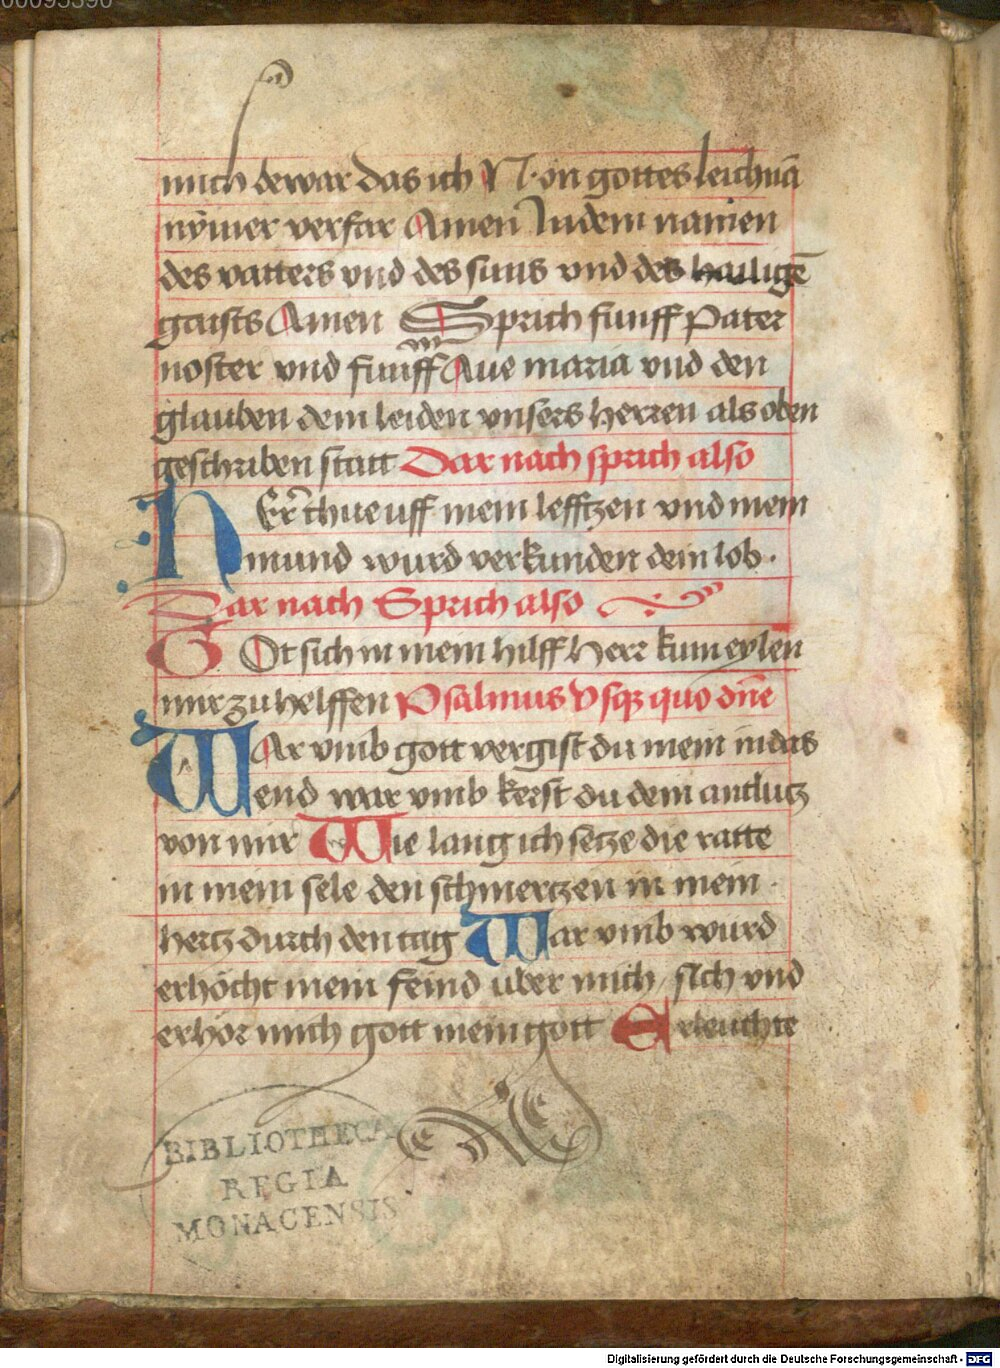 00095390
mich bewar das ich N. on gottes leichnā
nÿmer verfar Amen In dem namen
des vatters vnd des suns vnd des hailigē
gaists Amen Sprich funff Pater
noster vnd funff Aue maria vnd den
glauben dem leiden vnsers herren als oben
geschriben statt Dar nach sprich also
HEr̄ thue uff mein lefftzen vnd mein
mund wurd verkunden dein lob.
Dar nach Sprich also
GOt sich in mein hilff herr kum eylen
mir zu helffen Psalmus Vsqꝫ quo dn̄e
WAr vmb gott vergist du mein in das
end war vmb kerst du dein antlutz
von mir Wie lang ich setze die ratte
in mein sele den schmertzen in mein
hertz durch den tag War vmb wurd
erhöcht mein feind uber mich / sich vnd
erhör mich gott mein gott Erleuchte
BIBLIOTHECA
REGIA
MONACENSIS
Digitalisierung gefördert durch die Deutsche Forschungsgemeinschaft - DFG